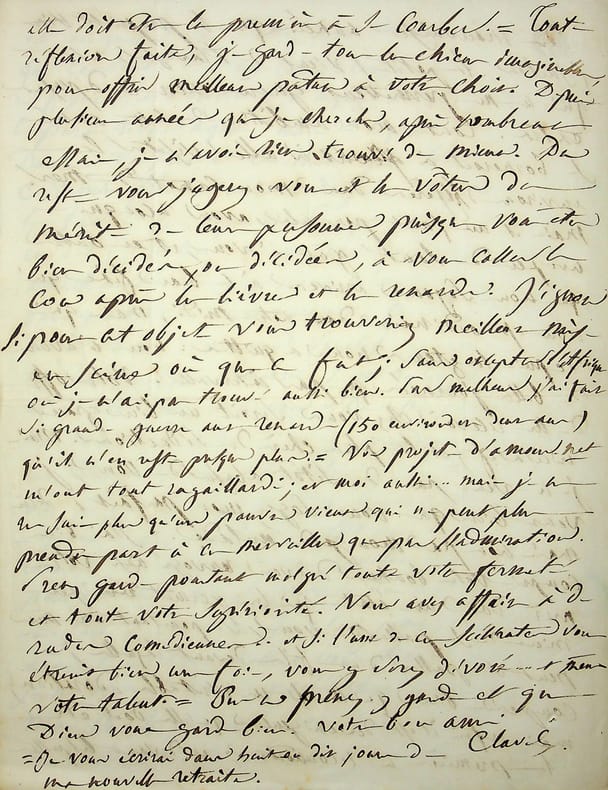 elle doit être la première à St Courbes. = Toute
réflexion faite, je garde tous les chiens imaginables,
pour offrir meilleure pature à votre choix. Depuis
plusieurs années que je cherche, après nombreux
essais, je n'avois rien trouvé de mieux. Du
reste vous jugerez vous et les vôtres du
mérite de leurs personnes puisque vous êtes
bien décidés, ou décidées, à vous casser le
cou après les lièvres et les renards. J'ignore
si pour cet objet vous trouveriez meilleur pays
en Seine où que ce fut; sans excepter l'Afrique
où je n'ai pas trouvé aussi bien. Par malheur j'ai fait
si grande guerre aux renards (150 environ en deux ans)
qu'il n'en reste presque plus. = Vos projets d'amour
m'ont tout ragaillardi; et moi aussi... mais je ne
ne suis plus qu'un pauvre vieux qui ne peut plus
prendre part à ces merveilles que par l'admiration.
Prenez garde pourtant malgré toute votre fermeté
et toute votre supériorité. Vous avez affaire à de
rudes comédiennes. et si l'une de ces scélérates vous
étreint bien une fois, vous y serez dévoré... et même
votre talent = Prenez y garde et que
Dieu vous garde bien. votre bon ami
= Je vous écrirai dans huit ou dix jours de
ma nouvelle retraite.